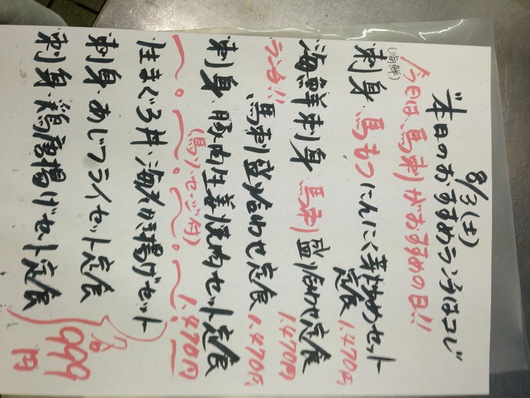 8/3(土)
本日のおすすめランチはコレ
今日は、馬刺がおすすめの日!!
(海鮮)
刺身 馬もつにんにく芽炒めセット
定食 1.470円
海鮮刺身 馬刺 盛合わせ定食
1.470円
ランチ!! 馬刺盛合わせ定食 1.470円
刺身 豚肉生姜焼肉セット定食
1.470円
生まぐろ丼 海老かき揚げセット
刺身 あじフライセット定食
刺身 鶏唐揚げセット定食
999円